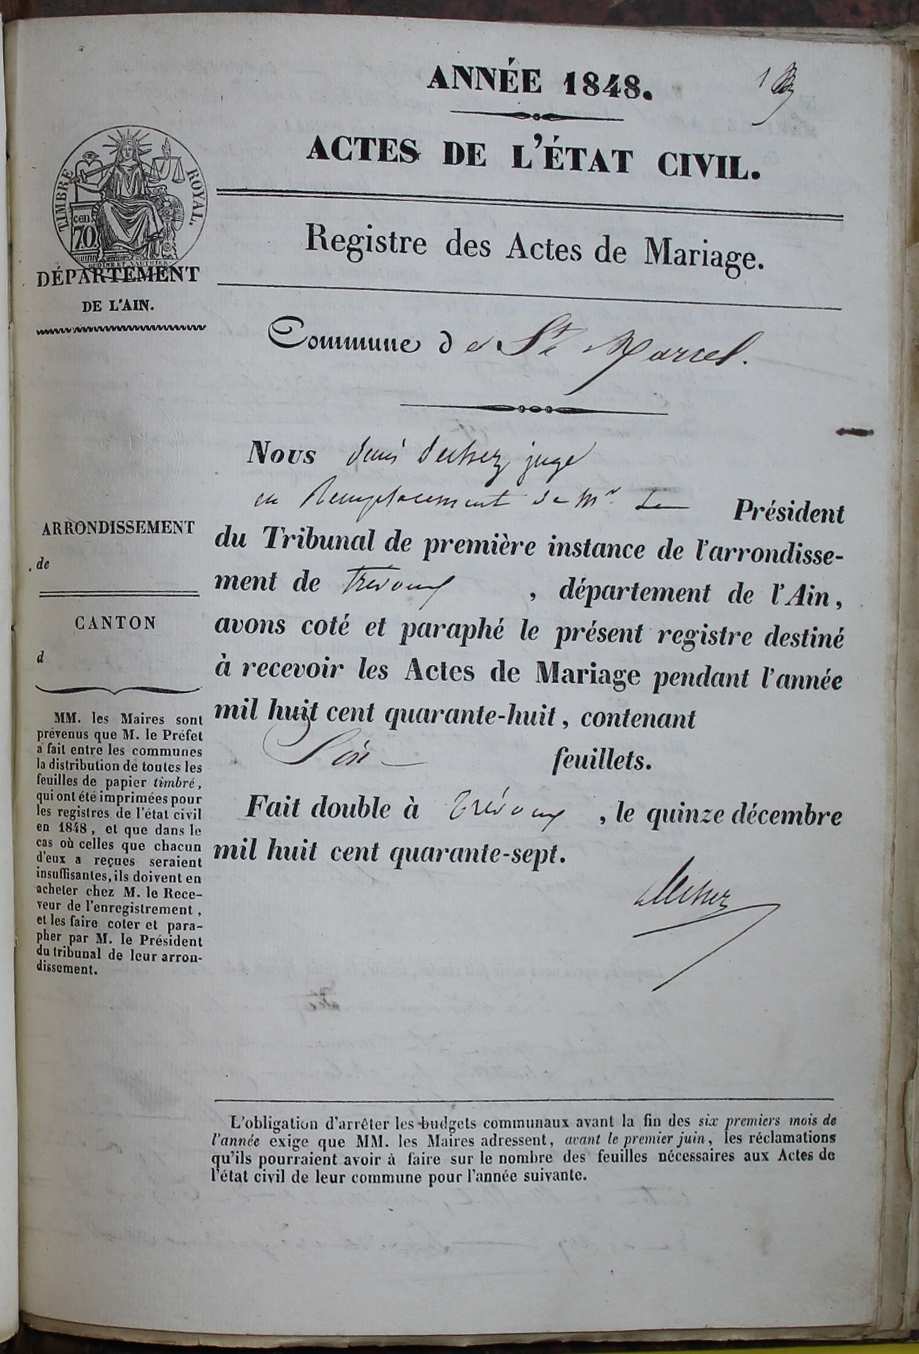 ANNÉE 1848.
1
ACTES DE L'ÉTAT CIVIL.
TIMBRE ROYAL.
cen
70
Registre des Actes de Mariage.
DÉPARTEMENT
DE L'AIN.
Commune de St Marcel.
Nous juge
en Remplacement de Mr Le Président
du Tribunal de première instance de l'arrondisse-
ment de Trévoux, département de l'Ain,
avons coté et paraphé le présent registre destiné
à recevoir les Actes de Mariage pendant l'année
mil huit cent quarante-huit, contenant
Six feuillets.
Fait double à Trévoux, le quinze décembre
mil huit cent quarante-sept.
ARRONDISSEMENT
de
CANTON
d
MM. les Maires sont
prévenus que M. le Préfet
a fait entre les communes
la distribution de toutes les
feuilles de papier timbré,
qui ont été imprimées pour
les registres de l'état civil
en 1848, et que dans le
cas où celles que chacun
d'eux a reçues seraient
insuffisantes, ils doivent en
acheter chez M. le Rece-
veur de l'enregistrement,
et les faire coter et para-
pher par M. le Président
du tribunal de leur arron-
dissement.
L'obligation d'arrêter les budgets communaux avant la fin des six premiers mois de
l'année exige que MM. les Maires adressent, avant le premier juin, les réclamations
qu'ils pourraient avoir à faire sur le nombre des feuilles nécessaires aux Actes de
l'état civil de leur commune pour l'année suivante.